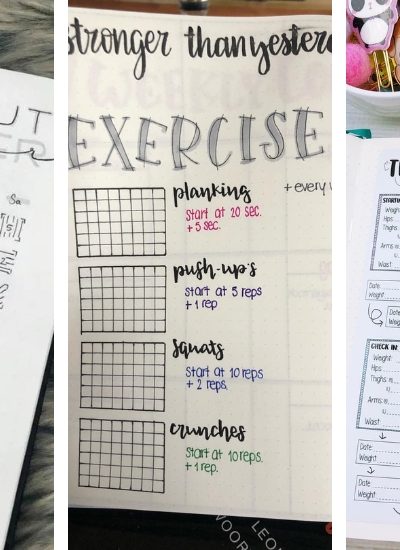 stronger than yester
EXERCISE
planking
+ every
Start at 20 sec.
+ 5 sec.
push-up's
Start at 5 reps
+ 1 rep
Squats
Start at 10 reps
+ 2 reps.
crunches
Start at 10 reps.
+ 1 rep.
UT
Sa
Weight
Hips
Thighs
Waist
Date:
Weight:
CHECK IN:
Weight:
Hips
Thighs
Arms
Waist
Date:
Weight:
Date:
Weight: